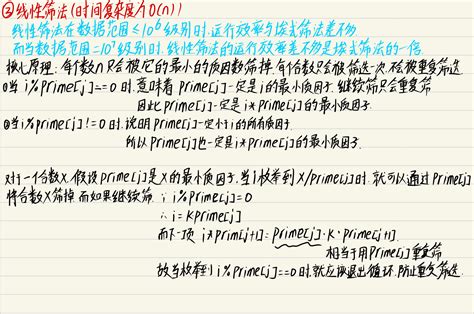 ②线性筛法(时间复杂度为O(n))
线性筛法在数据范围≤10⁶级别时,运行效率与埃式筛法差不多
而当数据范围=10⁷级别时,线性筛法的运行效率差不多是埃式筛法的一倍.
核心原理:每个数n只会被它的最小的质因数筛掉,每个合数只会被筛选一次,不会被重复筛选
①当i%prime[j]==0时.意味着prime[j]一定是i的最小质因子.继续筛只会重复筛
因此prime[j]一定是i*prime[j]的最小质因子.
②当i%prime[j]!=0时.说明prime[j]一定小于i的所有质因子.
所以prime[j]也一定是i*prime[j]的最小质因子.
对于一个合数x.假设prime[j]是x的最小质因子.当i枚举到x/prime[j]时.就可以通过prime[j]
将合数x筛掉.而如果继续筛:∵i%prime[j]=0
∴i=kprime[j]
而下一项i*prime[j+1]=prime[j]·k·prime[j+1]
相当于用prime[j]重复筛
故当枚举到i%prime[j]==0时.就应该退出循环.防止重复筛选.